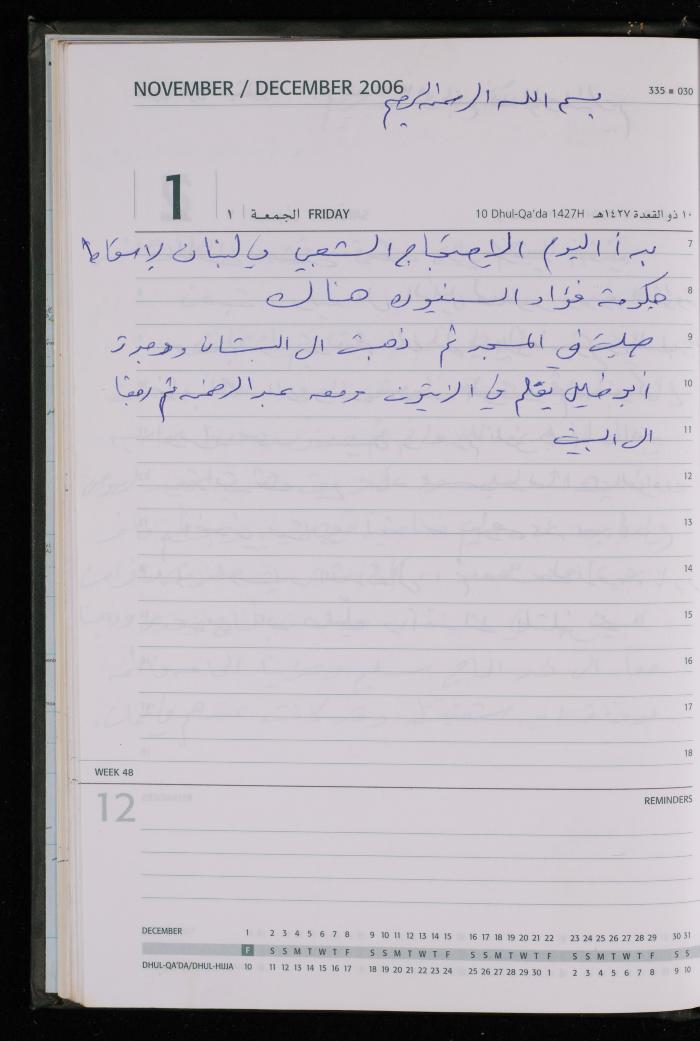 NOVEMBER / DECEMBER 2006
بسم الله الرحمن الرحيم
335 ■ 030
1
١ الجمعة FRIDAY
10 Dhul-Qa'da 1427H ١٠ ذو القعدة ١٤٢٧هـ
7 بدأ اليوم الاحتجاج الشعبي في لبنان لإسقاط
8 حكومة فؤاد السنيورة هناك
9 صليت في المسجد ثم ذهبت ال البستان ووجدت
10 أبو خليل يقلم في الزيتون ومعه عبد الرحمن ثم رجعنا
11 ال البيت
12
13
14
15
16
17
18
WEEK 48
12
REMINDERS
DECEMBER 1 2 3 4 5 6 7 8 9 10 11 12 13 14 15 16 17 18 19 20 21 22 23 24 25 26 27 28 29 30 31
F S S M T W T F S S M T W T F S S M T W T F S S M T W T F S S
DHUL-QA'DA/DHUL-HIJJA 10 11 12 13 14 15 16 17 18 19 20 21 22 23 24 25 26 27 28 29 30 1 2 3 4 5 6 7 8 9 10